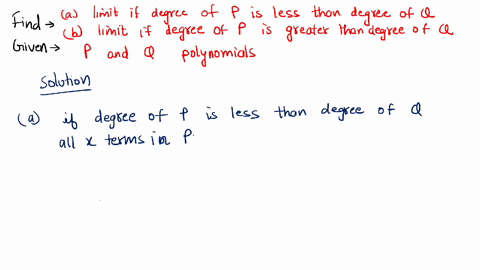 Find → (a) limit if degree of P is less than degree of Q
(b) limit if degree of P is greater than degree of Q
Given → P and Q polynomials
Solution
(a) if degree of P is less than degree of Q
all x terms in P